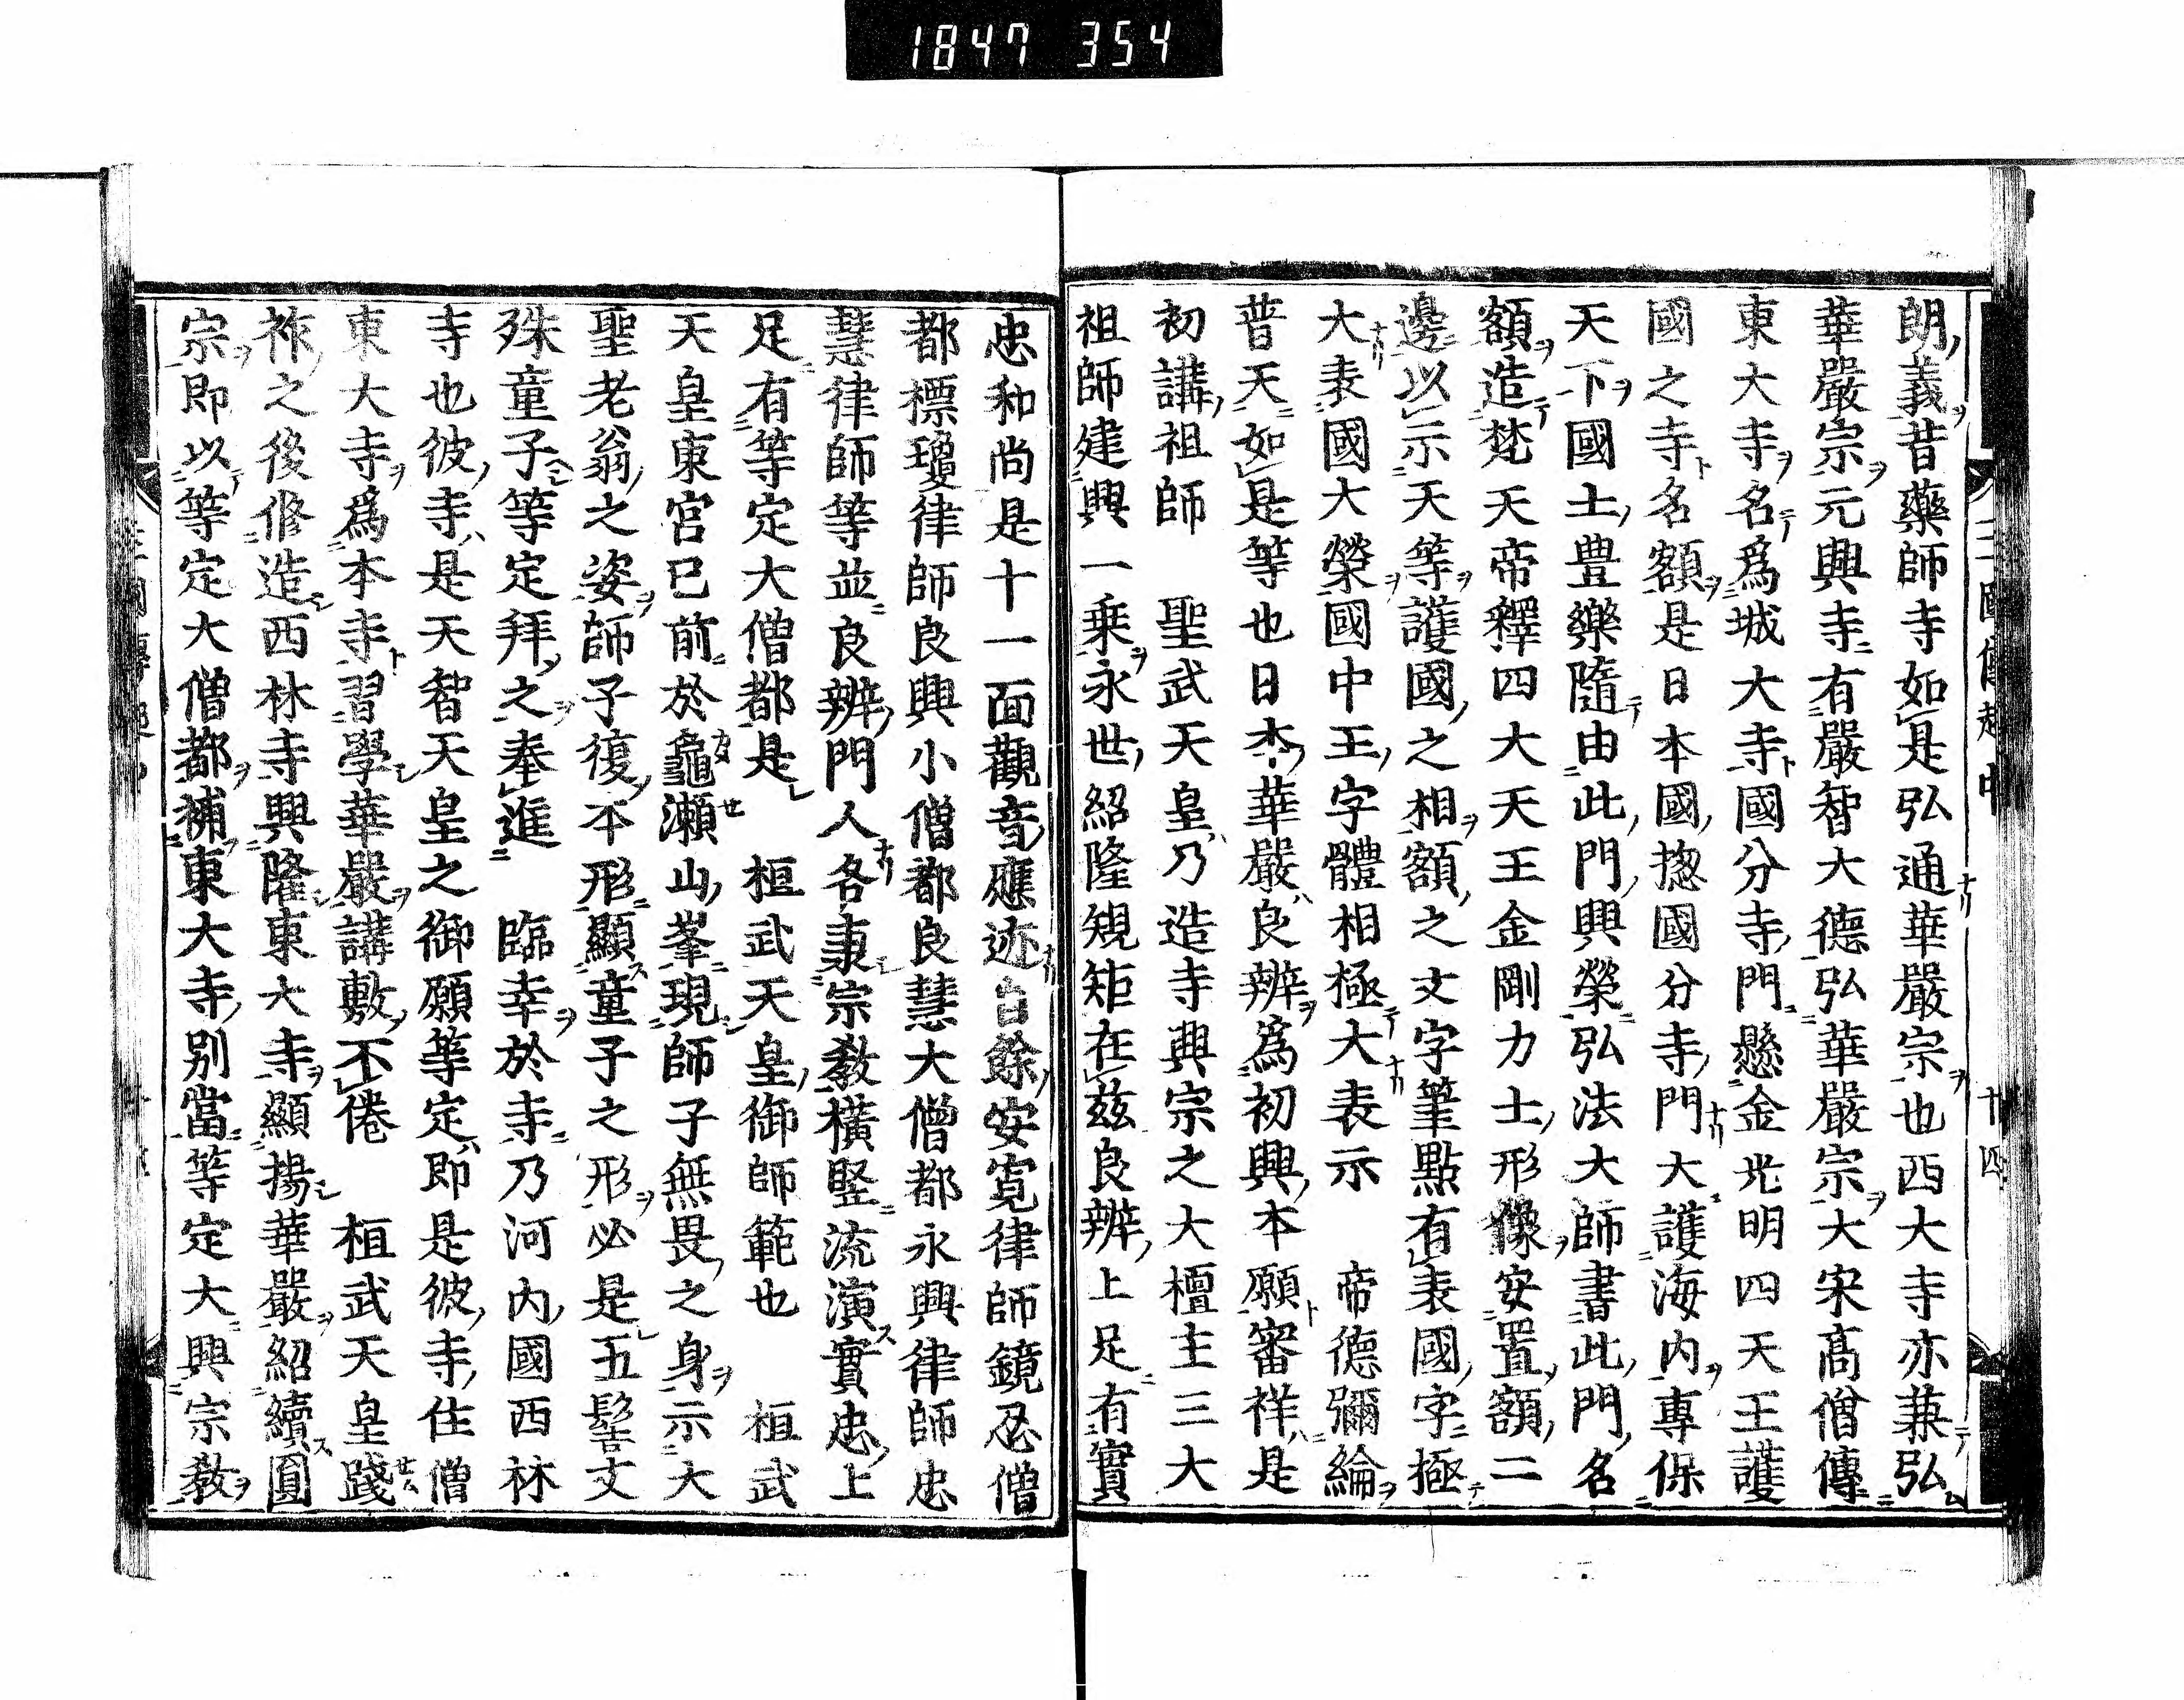 1847 354
朗義昔藥師寺如是弘通華嚴宗也西大寺亦兼弘
華嚴宗元興寺有嚴智大德弘華嚴宗大宋高僧傳
東大寺名爲城大寺國分寺門懸金光明四天王護
國之寺名額是日本國揔國分寺門大護海内專保
天下國土豊樂隨由此門興榮弘法大師書此門名
額造梵天帝釋四大天王金剛力士形像安置額二
邊以示天等護國之相額之文字筆點有表國字極
大表國大榮國中王字體相極大表示 帝德彌綸
普天如是等也日本華嚴良辨爲初興本願審祥是
初講祖師 聖武天皇乃造寺興宗之大檀主三大
祖師建興一乗永世紹隆規矩在茲良辨上足有實
忠和尚是十一面觀音應迹自餘安寛律師鏡忍僧
都標瓊律師良興小僧都良慧大僧都永興律師忠
慧律師等並良辨門人各秉宗教横竪流演實忠上
足有等定大僧都是 桓武天皇御師範也 桓武
天皇東宮已前於龜瀬山峯現師子無畏之身示大
聖老翁之姿師子復不形顯童子之形必是五髻文
殊童子等定拜之奉進 臨幸於寺乃河内國西林
寺也彼寺是天智天皇之御願等定即是彼寺住僧
東大寺爲本寺習學華嚴講敷不倦 桓武天皇踐
祚之後修造西林寺興隆東大寺顯揚華嚴紹續圓
宗即以等定大僧都補東大寺別當等定大興宗教
三國傳 中 十四